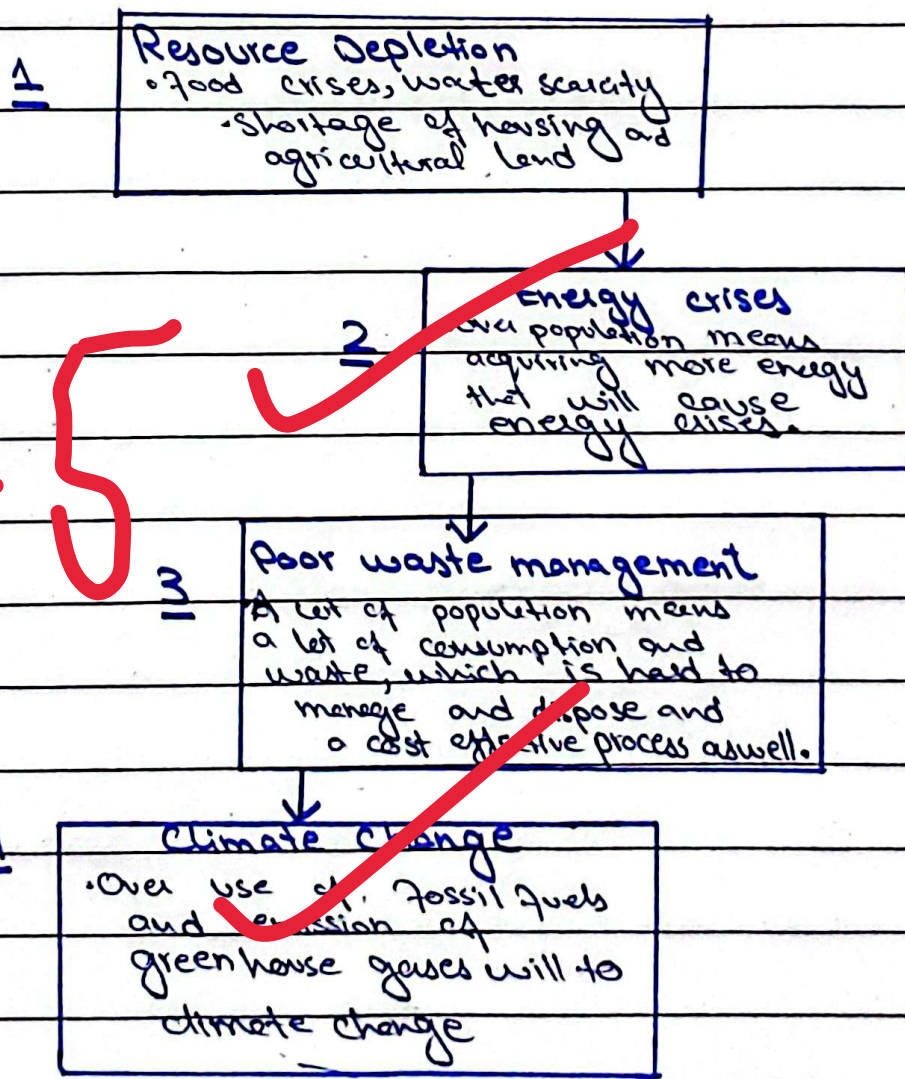 1
Resource Depletion
• Food crises, water scarcity
• Shortage of housing and
agricultural land
2
Energy crises
Over population means
acquiring more energy
that will cause
energy crises.
5
3
Poor waste management
A lot of population means
a lot of consumption and
waste, which is hard to
manage and dispose and
a cost effective process aswell.
Climate Change
• Over use of fossil fuels
and emission of
greenhouse gases will to
climate change